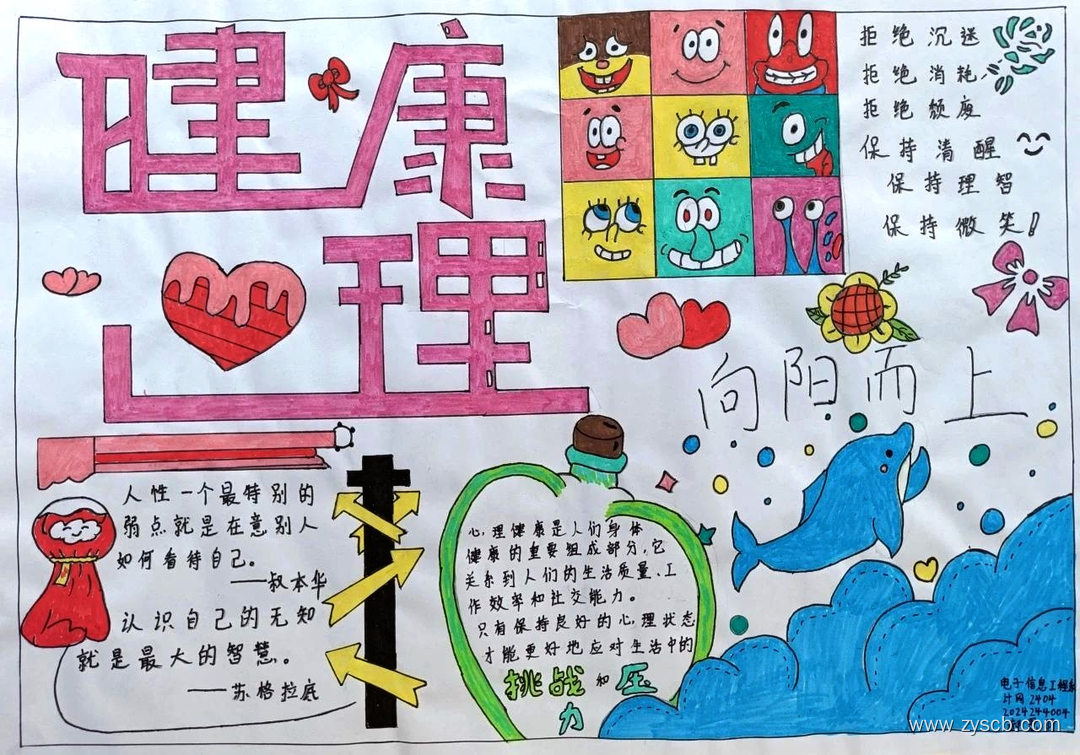 健康
心理
拒绝沉迷
拒绝消耗
拒绝颓废
保持清醒
保持理智
保持微笑!
向阳而上
人性一个最特别的
弱点就是在意别人
如何看待自己。
——叔本华
认识自己的无知
就是最大的智慧。
——苏格拉底
心理健康是人们身体
健康的重要组成部分,它
关系到人们的生活质量、工
作效率和社交能力。
只有保持良好的心理状态
才能更好地应对生活中的
挑战和压
力
电子信息工程系
计网2404
2024244004
www.zyscb.com